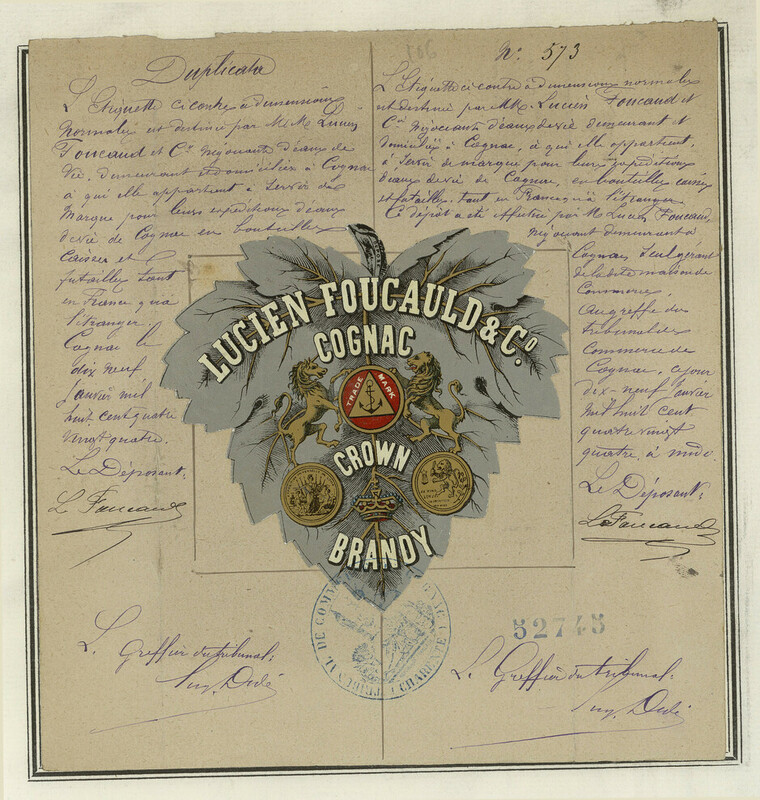 Duplicata
L'Etiquette ci contre a dimensions
normales est destinée par M.M. Lucien
Foucaud et Cie négociants d'eaux de
vie, demeurant et domiciliés à Cognac
à qui elle appartient à servir de
marque pour leurs expéditions d'eaux
de vie de Cognac en bouteilles
caisses et
futailles tant
en France qu'à
l'étranger.
Cognac le
dix neuf
Janvier mil
huit cent quatre
vingt quatre.
Le Déposant:
L Foucaud
Le Greffier du tribunal:
No 573
L'Etiquette ci contre à dimensions normales
est destinée par MM. Lucien Foucaud et
Cie négociants d'eaux de vie demeurant et
domiciliés à Cognac, à qui elle appartient,
à servir de marque pour leurs expéditions
d'eaux de vie de Cognac, en bouteilles caisses
et futailles, tant en France qu'à l'étranger
Ce dépôt a été effectué par M. Lucien Foucaud,
négociant demeurant à
Cognac, seul gérant
de la dite maison de
Commerce,
au greffe du
tribunal de
Commerce de
Cognac, ce jour
dix-neuf janvier
mil huit cent
quatre vingt
quatre, à midi.
Le Déposant:
L Foucaud
52745
Le Greffier du tribunal:
LUCIEN FOUCAULD & Co.
COGNAC
TRADE MARK
CROWN
BRANDY